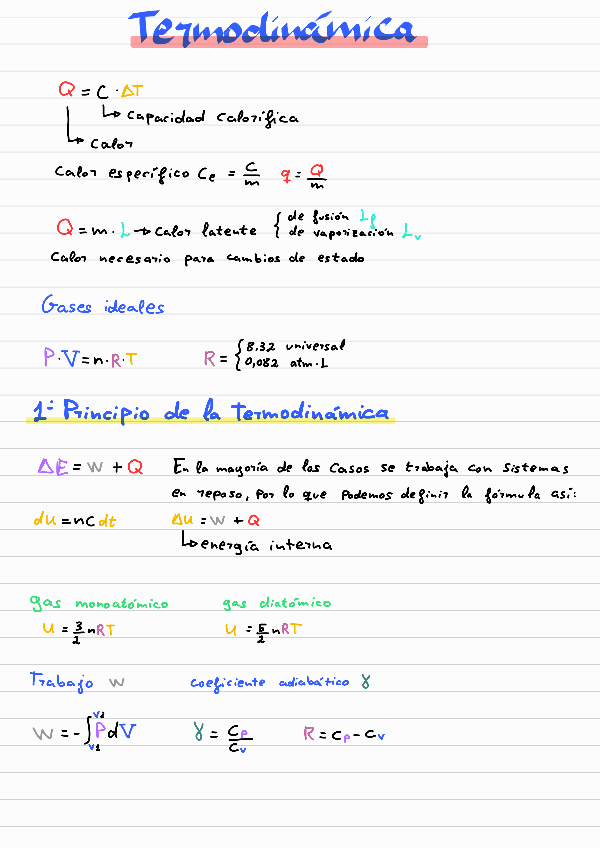 Termodinámica
Q = C · ΔT
↳ Capacidad Calorífica
↳ Calor
Calor específico Ce = C/m q = Q/m
Q = m · L → Calor latente { de fusión Lf
de vaporización Lv
Calor necesario para cambios de estado
Gases ideales
P·V = n·R·T R = { 8.32 universal
0,082 atm·L
1º Principio de la Termodinámica
ΔE = W + Q En la mayoría de los Casos se trabaja con Sistemas
en reposo, Por lo que Podemos definir la fórmula así:
du = nC dt Δu = W + Q
↳ energía interna
gas monoatómico gas diatómico
U = 3/2 nRT U = 5/2 nRT
Trabajo W coeficiente adiabático γ
W = -∫_{V1}^{V2} P dV γ = CP/CV R = CP - CV